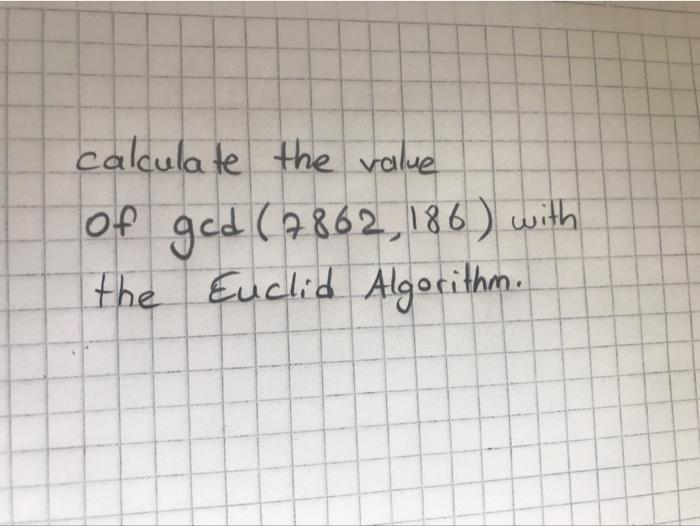 calculate the value
of gcd (7862, 186) with
the Euclid Algorithm.